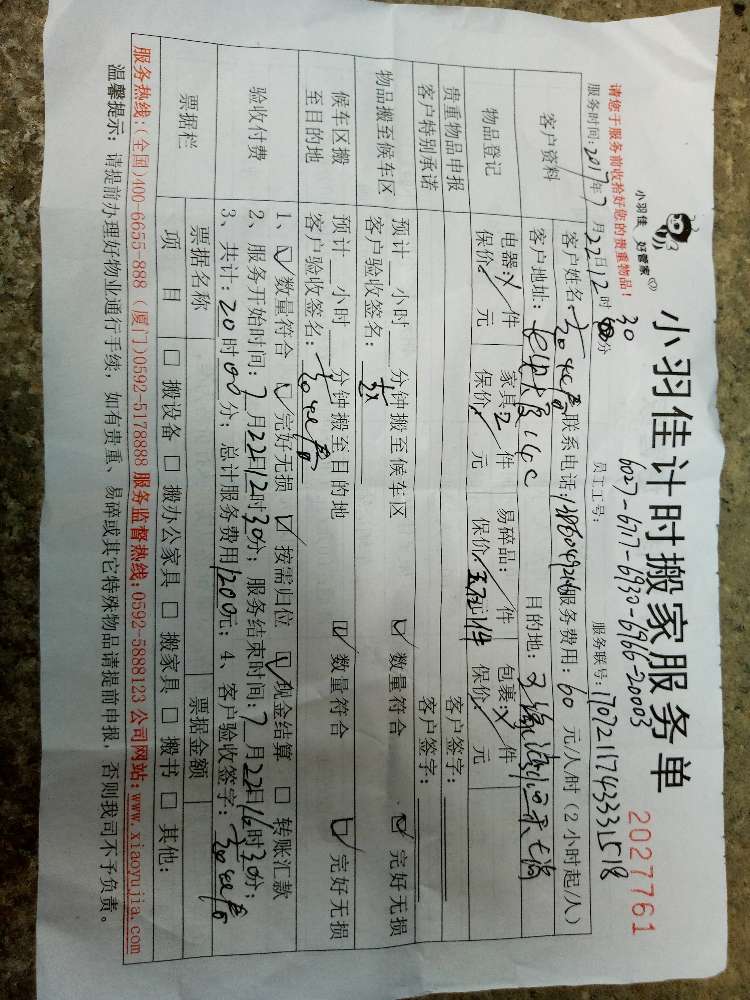 小羽佳 好管家
小羽佳计时搬家服务单
2027761
6027-6117-6930-6966-20003
请您于服务前收拾好您的贵重物品！
员工工号：
服务联号：170721174333518
服务时间：2017年7月22日12时30分
客户资料
客户姓名： 联系电话： 服务费用：60元/人/时（2小时起/人）
客户地址： 14C 目的地：
物品登记
电器： 件 家具：2件 易碎品： 件 包裹： 件
保价 元 保价 元 保价 元 保价 元
贵重物品申报 客户签字：
客户特别承诺 客户签字：
物品搬至候车区
预计__小时__分钟搬至候车区 ☑数量符合 ☑完好无损
客户验收签名：
候车区搬至目的地
预计__小时__分钟搬至目的地 ☑数量符合 ☑完好无损
客户验收签名：
验收付费
1、☑数量符合 ☑完好无损 ☑按需归位 ☑现金结算 □转账汇款
2、服务开始时间：7月22日12时30分；服务结束时间：7月22日16时30分；
3、共计：20时00分；总计服务费用1200元；4、客户验收签字：
票据栏
票据名称 票据金额
项目 □搬设备 □搬办公家具 □搬家具 □搬书 □其他：
服务热线：(全国)400-6655-888 (厦门)0592-5178888 服务监督热线：0592-5888123 公司网站：www.xiaoyujia.com
温馨提示：请提前办理好物业通行手续，如有贵重、易碎或其它特殊物品请提前申报，否则我司不予负责。